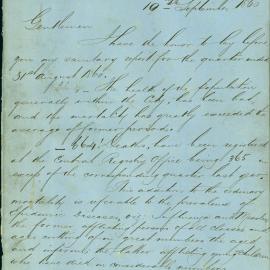 19th September 1860
Gentlemen
I have the honor to lay before
you my sanitary report for the quarter ended
31st August 1860.
The health of the population
generally within the City, has been bad,
and the mortality has greatly exceeded the
average of former periods.
664 deaths, have been registered
at the Central Registry Office being 365 in
excess of the corresponding quarter last year.
This addition to the ordinary
mortality is referable to the prevalence of
Epidemic Diseases, viz: Influenza and Measles
the former affecting persons of all classes and
and carrying off in great numbers the aged
and infirm, the latter affecting young children
who have died in considerable